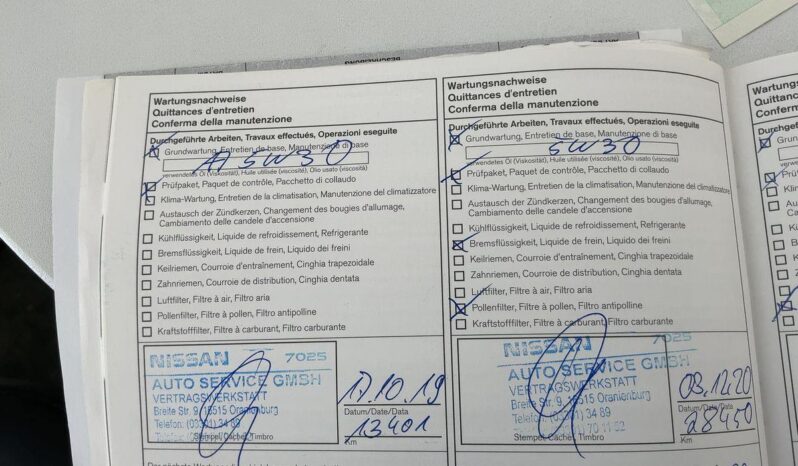 Wartungsnachweise
Quittances d'entretien
Conferma della manutenzione
Durchgeführte Arbeiten, Travaux effectués, Operazioni eseguite
Grundwartung, Entretien de base, Manutenzione di base
5W30
verwendetes Öl (Viskosität), Huile utilisée (viscosité), Olio usato (viscosità)
Prüfpaket, Paquet de contrôle, Pacchetto di collaudo
Klima-Wartung, Entretien de la climatisation, Manutenzione del climatizzatore
Austausch der Zündkerzen, Changement des bougies d'allumage,
Cambiamento delle candele d'accensione
Kühlflüssigkeit, Liquide de refroidissement, Refrigerante
Bremsflüssigkeit, Liquide de frein, Liquido dei freini
Keilriemen, Courroie d'entraînement, Cinghia trapezoidale
Zahnriemen, Courroie de distribution, Cinghia dentata
Luftfilter, Filtre à air, Filtro aria
Pollenfilter, Filtre à pollen, Filtro antipolline
Kraftstofffilter, Filtre à carburant, Filtro carburante
NISSAN 7025
AUTO SERVICE GMBH
VERTRAGSWERKSTATT
Breite Str. 9, 16515 Oranienburg
Telefon: (03301) 34 89
Stempel/Cachet, Timbro
17.10.19
Datum/Date/Data
13401
Km
Wartungsnachweise
Quittances d'entretien
Conferma della manutenzione
Durchgeführte Arbeiten, Travaux effectués, Operazioni eseguite
Grundwartung, Entretien de base, Manutenzione di base
5W30
verwendetes Öl (Viskosität), Huile utilisée (viscosité), Olio usato (viscosità)
Prüfpaket, Paquet de contrôle, Pacchetto di collaudo
Klima-Wartung, Entretien de la climatisation, Manutenzione del climatizzatore
Austausch der Zündkerzen, Changement des bougies d'allumage,
Cambiamento delle candele d'accensione
Kühlflüssigkeit, Liquide de refroidissement, Refrigerante
Bremsflüssigkeit, Liquide de frein, Liquido dei freini
Keilriemen, Courroie d'entraînement, Cinghia trapezoidale
Zahnriemen, Courroie de distribution, Cinghia dentata
Luftfilter, Filtre à air, Filtro aria
Pollenfilter, Filtre à pollen, Filtro antipolline
Kraftstofffilter, Filtre à carburant, Filtro carburante
NISSAN 7025
AUTO SERVICE GMBH
VERTRAGSWERKSTATT
Breite Str. 9, 16515 Oranienburg
Telefon: (03301) 34 89
Stempel/Cachet, Timbro
03.12.20
Datum/Date/Data
28450
Km